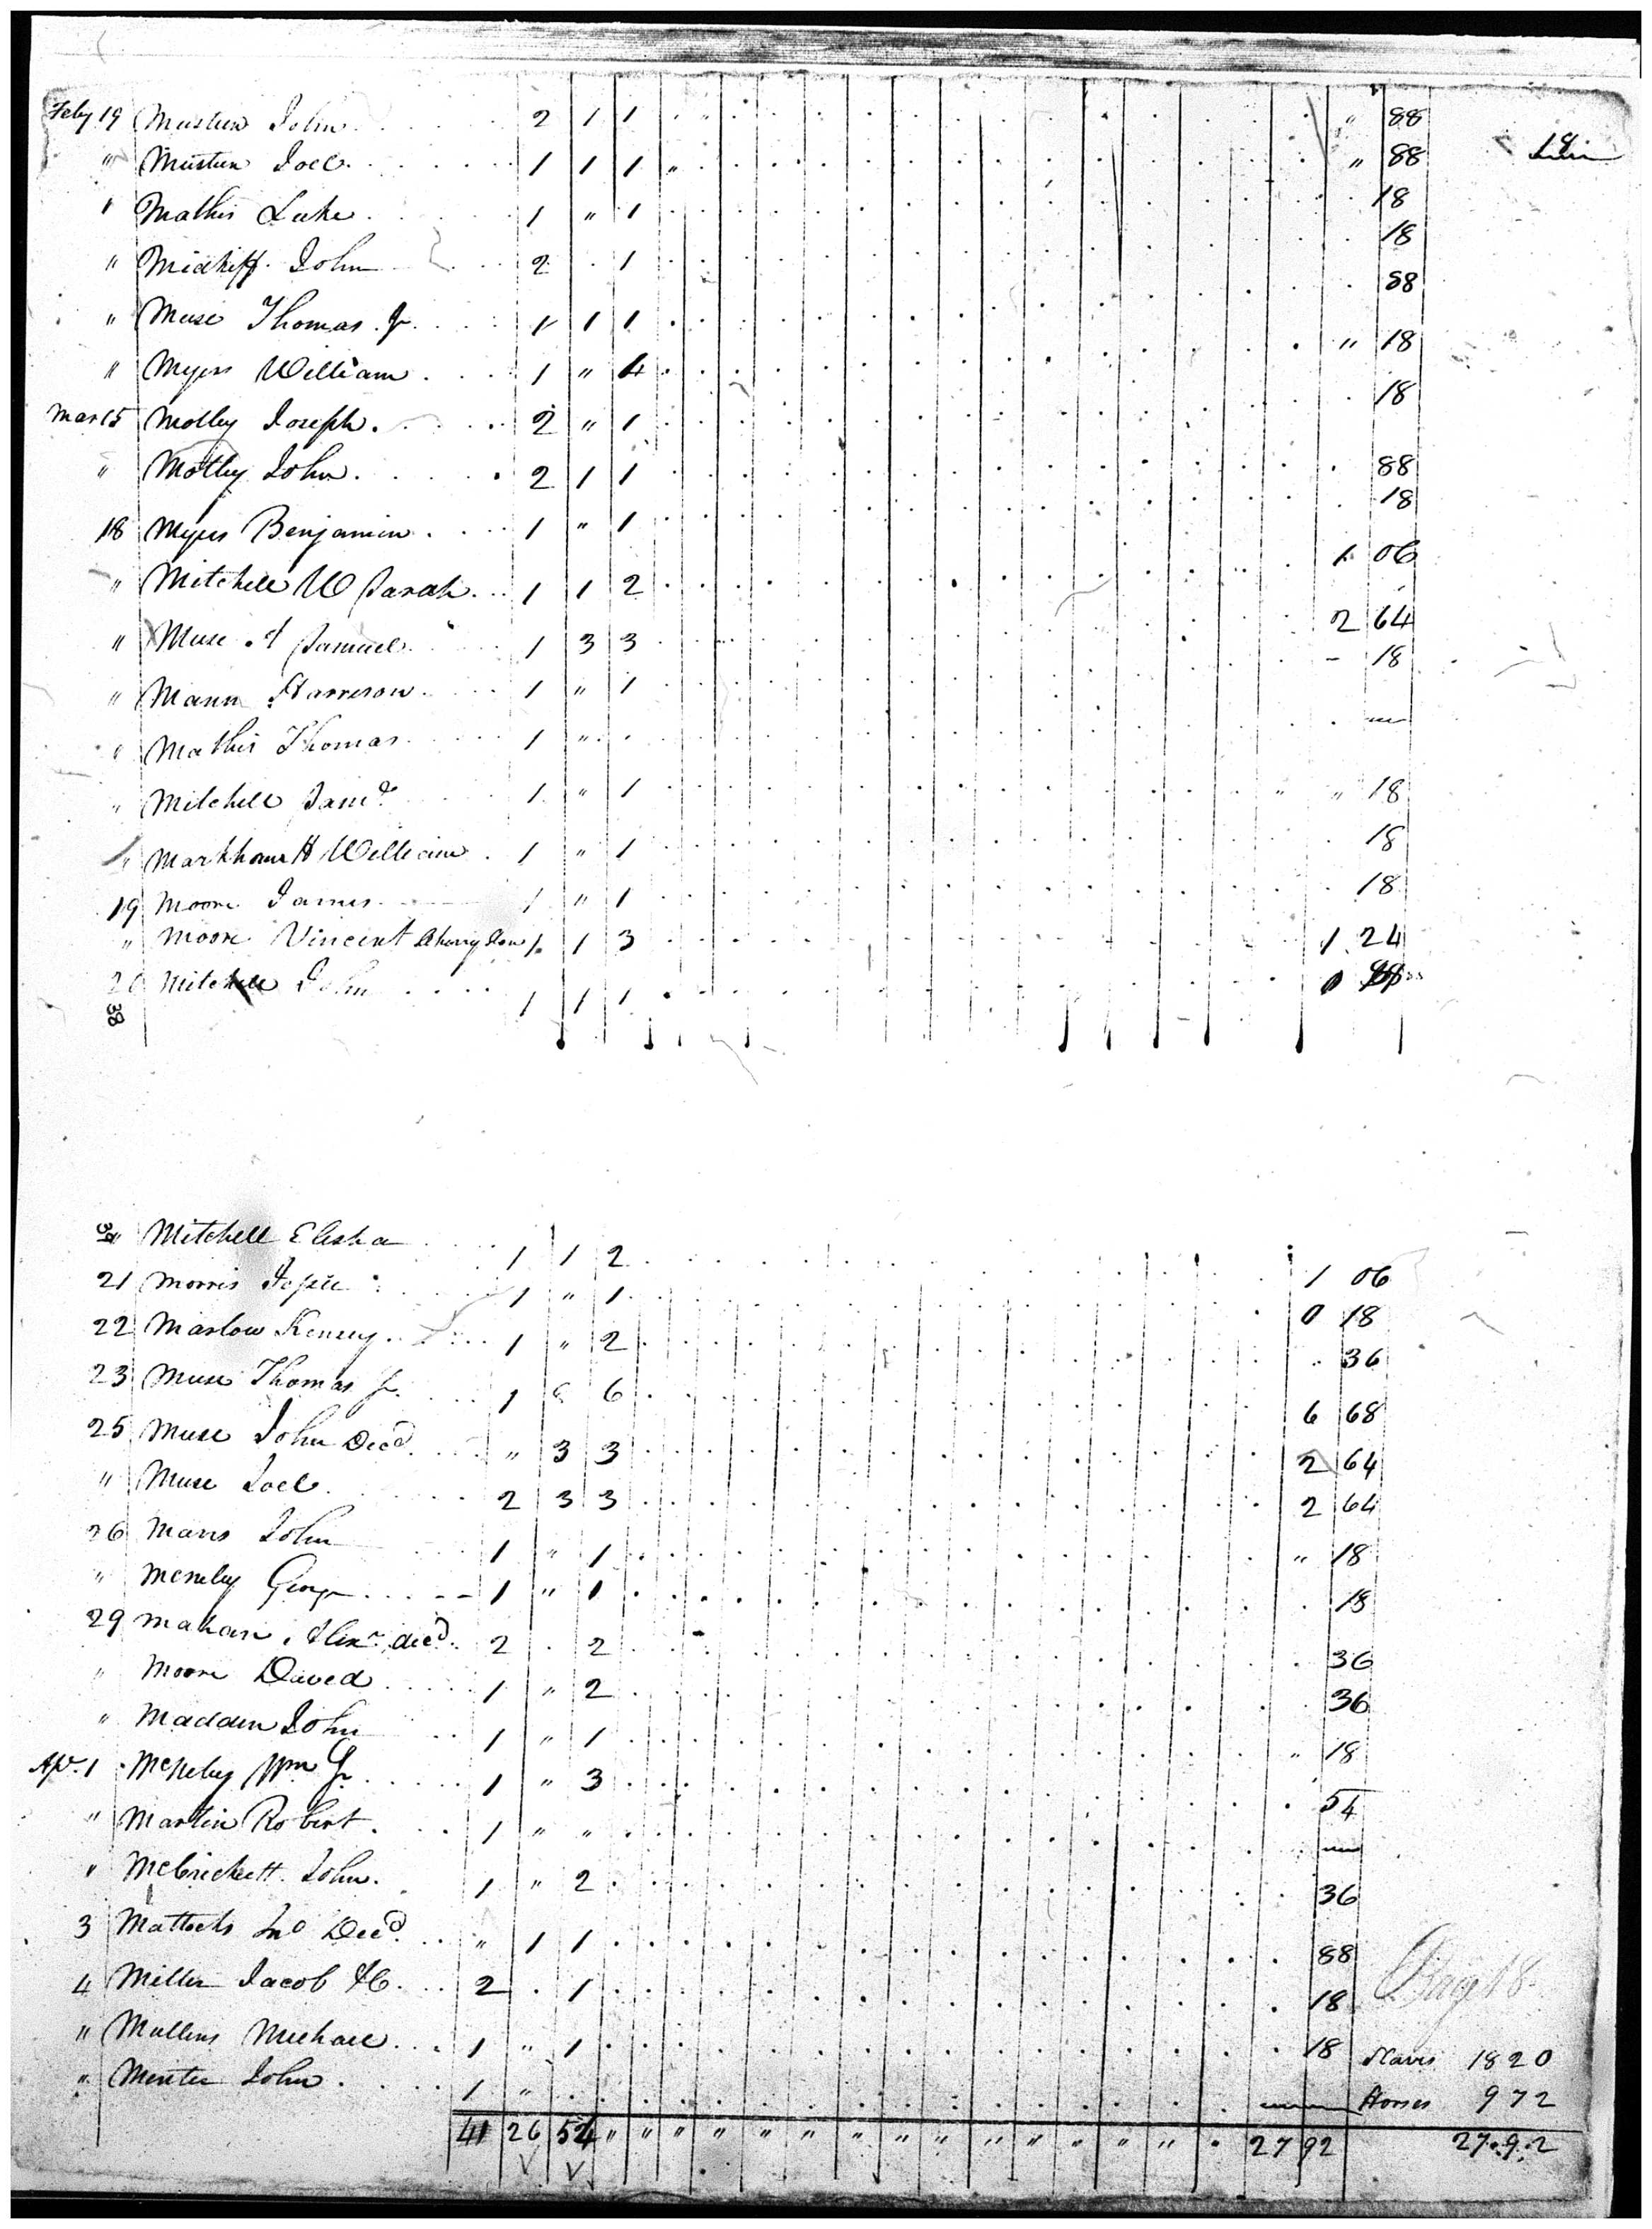 Feby 19 Musteen John 2 1 1 " 88
" Musteen Joel 1 1 1 " " 88
" Mathis Luke 1 " 1 18
" Midkiff John 2 1 18
" Muse Thomas Jr 1 1 1 88
" Myers William 1 " 1 " 18
Mar 15 Motley Joseph 2 " 1 18
" Motley John 2 1 1 88
18 Myers Benjamin 1 " 1 18
" Mitchell W Sarah 1 1 2 1 06
" Muse Samuel 1 3 3 2 64
" Mann Harrison 1 " 1 - 18
" Mathis Thomas 1 "
" Mitchell Saml 1 " 1 " " 18
" Markham H William 1 " 1 18
19 Moore James 1 " 1 18
" Moore Vincent 1 1 3 1 24
20 Mitchell John 1 1 1 0 88
38
38 " Mitchell Elisha 1 1 2 1 06
21 Morris 1 " 1 0 18
22 Marlow Kensey 1 " 2 " 36
23 Muse Thomas Jr 1 6 6 68
25 Muse John Decd " 3 3 2 64
" Muse Joel 2 3 3 2 64
26 John 1 " 1 " 18
" McNeley George 1 " 1 18
29 Mahan Alexr decd 2 2 36
" Moore David 1 " 2 36
" Madden John 1 " 1 " 18
Apr. 1 McNeley Wm Jr 1 " 3 54
" Martin Robert 1 " "
" McCrickett John 1 " 2 36
3 Mattocks Jno Decd " 1 1 88
4 Miller Jacob & C. 2 1 18
" Mullins Michael 1 " 1 18 Slaves 1820
" Menter John 1 " Horses 972
41 26 54 " " " " " " " " " " " " " " 27 92 27.9.2